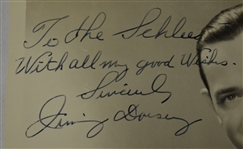 To the Schlees
With all my good Wishes.
Sincerely
Jimmy Dorsey